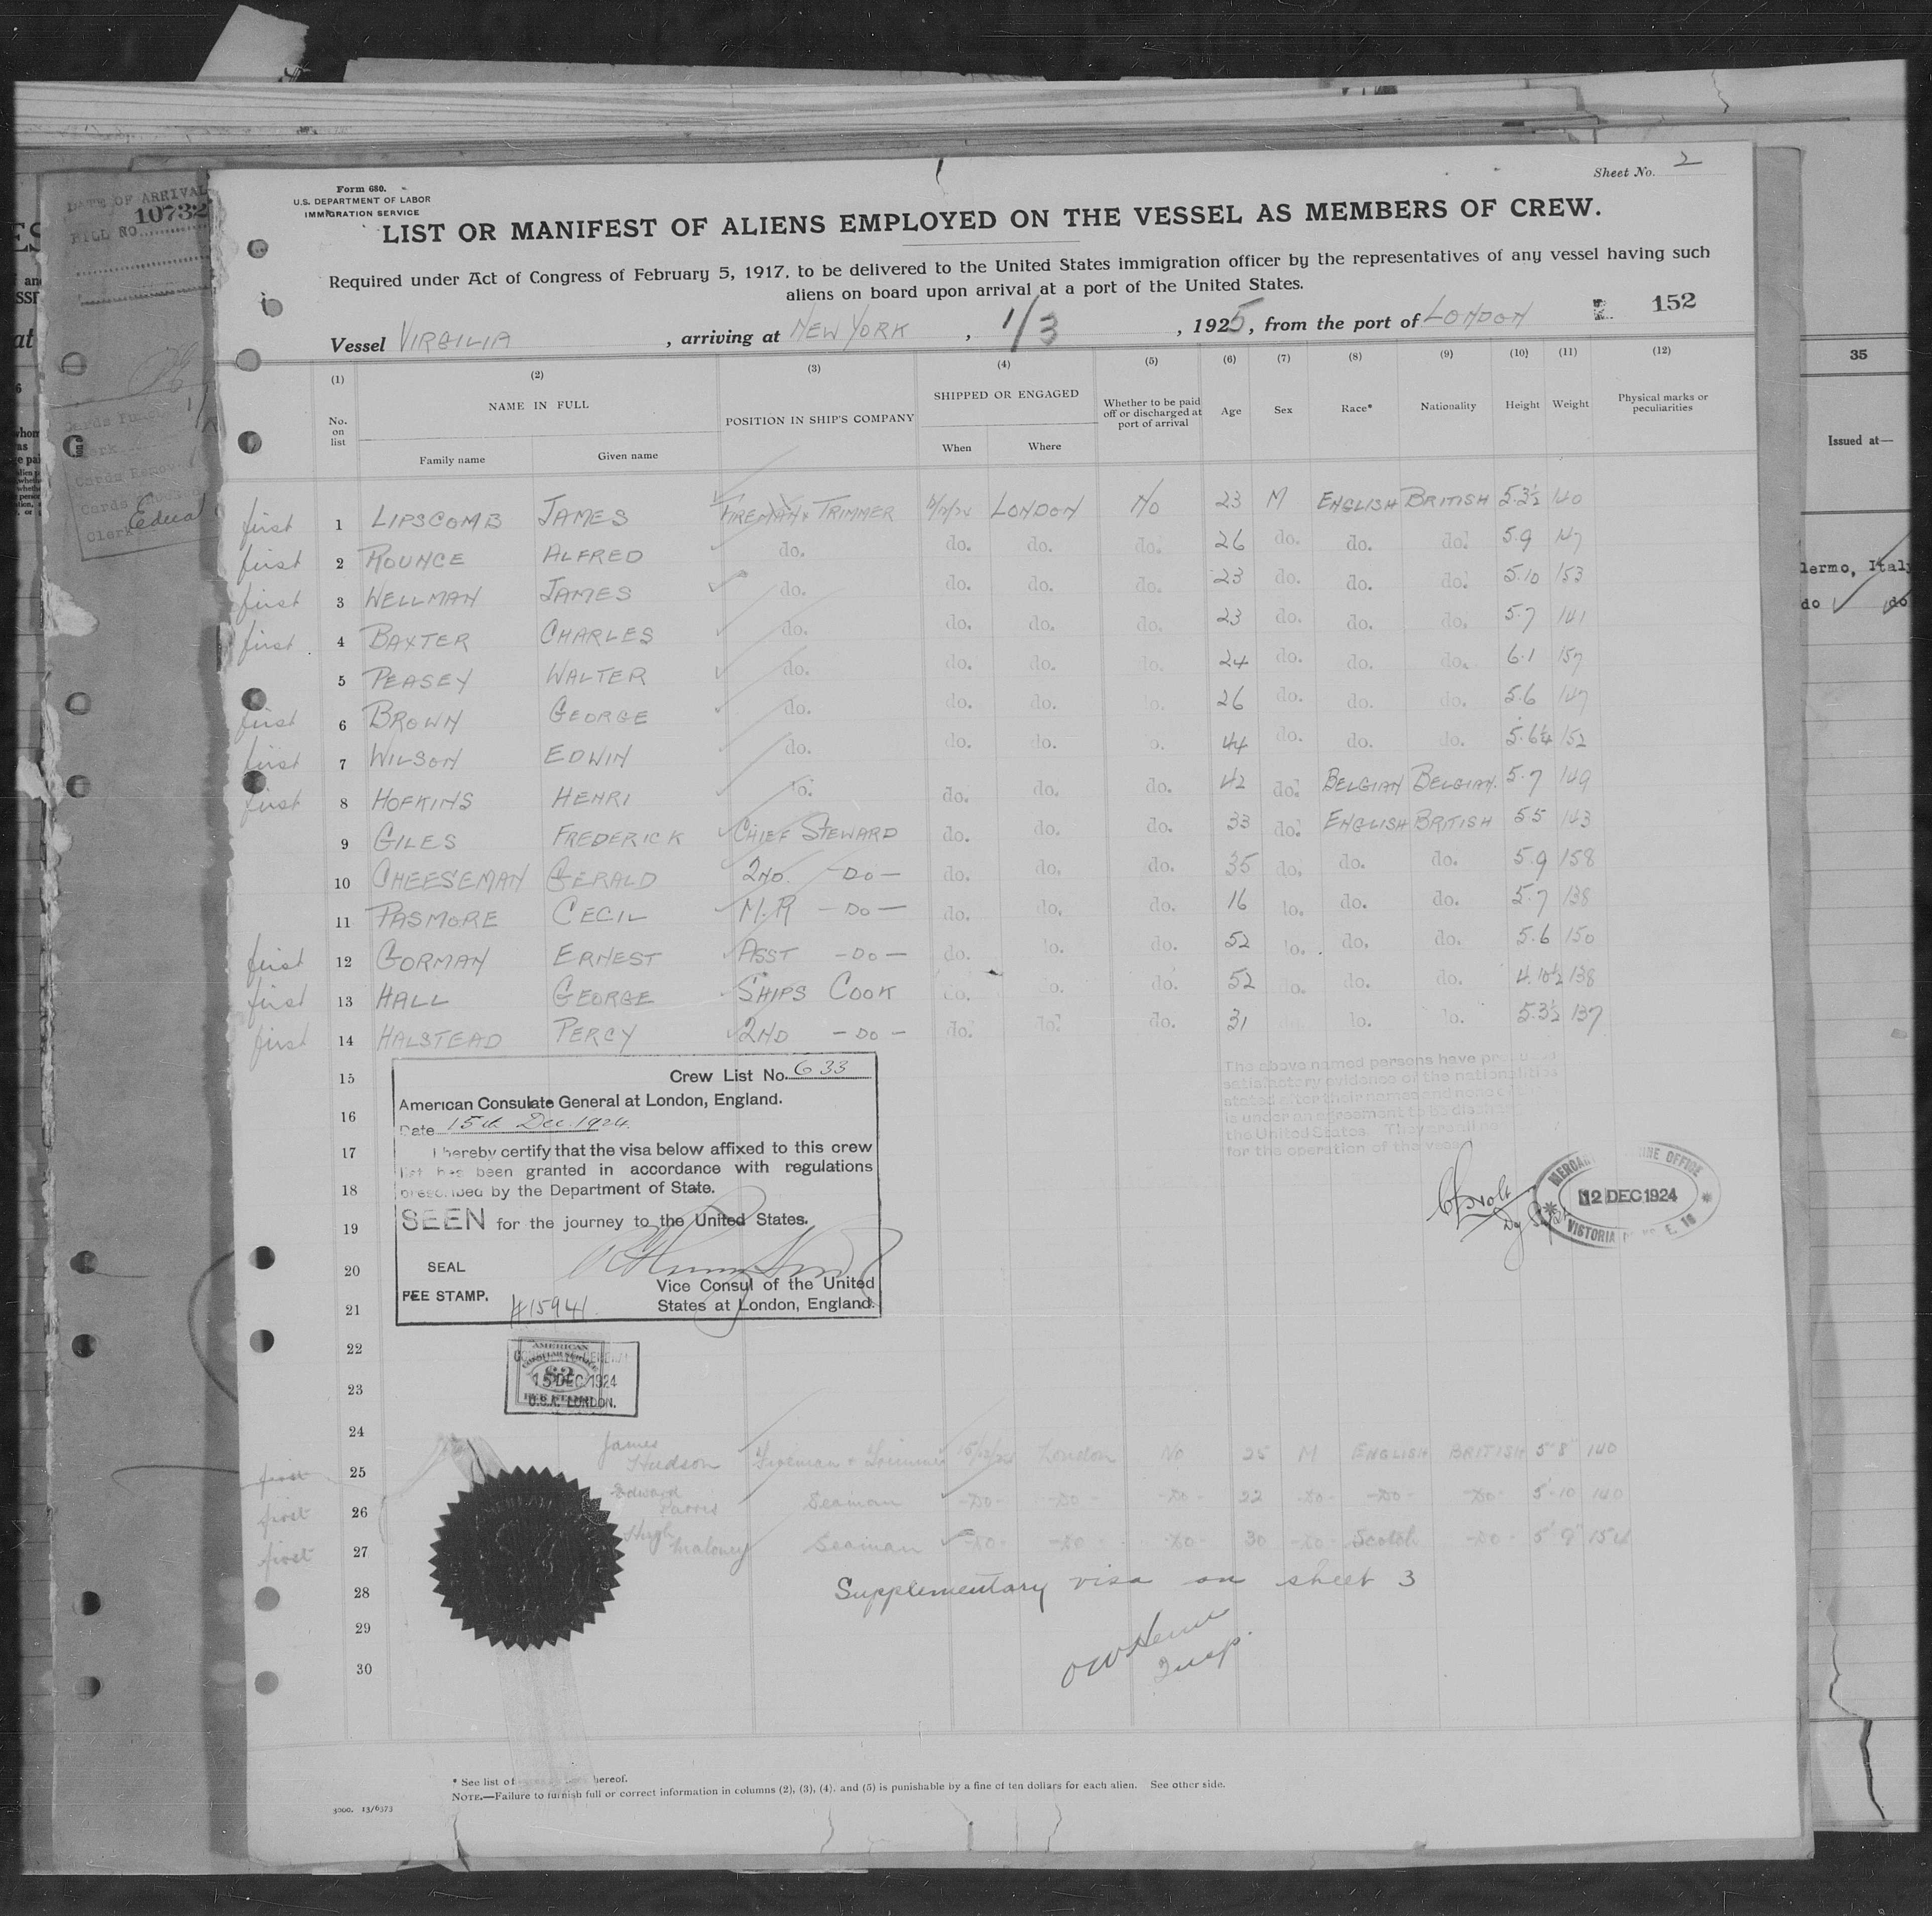 Sheet No. 2
Form 680.
U.S. DEPARTMENT OF LABOR
IMMIGRATION SERVICE
LIST OR MANIFEST OF ALIENS EMPLOYED ON THE VESSEL AS MEMBERS OF CREW.
Required under Act of Congress of February 5, 1917, to be delivered to the United States immigration officer by the representatives of any vessel having such
aliens on board upon arrival at a port of the United States.
152
Vessel VIRGILIA, arriving at NEW YORK, 1/3, 1925, from the port of LONDON
(1) (2) (3) (4) (5) (6) (7) (8) (9) (10) (11) (12)
No. on list NAME IN FULL POSITION IN SHIP'S COMPANY SHIPPED OR ENGAGED Whether to be paid off or discharged at port of arrival Age Sex Race* Nationality Height Weight Physical marks or peculiarities
Family name Given name When Where
first 1 LIPSCOMB JAMES FIREMAN & TRIMMER LONDON NO 23 M ENGLISH BRITISH 5.3½ 140
first 2 ROUNCE ALFRED do. do. do. do. 26 do. do. do. 5.9 147
first 3 WELLMAN JAMES do. do. do. do. 23 do. do. do. 5.10 153
first 4 BAXTER CHARLES do. do. do. do. 23 do. do. do. 5.7 141
5 PEASEY WALTER do. do. do. do. 24 do. do. do. 6.1 157
first 6 BROWN GEORGE do. do. do. 26 do. do. do. 5.6 147
first 7 WILSON EDWIN do. do. do. 44 do. do. do. 5.6¼ 152
first 8 HOFKINS HENRI do. do. do. do. 42 do. BELGIAN BELGIAN. 5.7 149
9 GILES FREDERICK CHIEF STEWARD do. do. do. 33 do. ENGLISH BRITISH 5 5 143
10 CHEESEMAN GERALD 2ND. -DO- do. do. do. 35 do. do. do. 5.9 158
11 PASMORE CECIL M.R -DO- do. do. do. 16 do. do. do. 5.7 138
first 12 GORMAN ERNEST ASST -DO- do. do. do. 52 do. do. do. 5.6 150
first 13 HALL GEORGE SHIPS COOK do. do. do. 52 do. do. do. 4.10½ 138
first 14 HALSTEAD PERCY 2ND -DO- do. do. do. 31 do. do. 5.3½ 137
15
16
17
18
19
20
21
22
23
24
Crew List No. 633
American Consulate General at London, England.
Date 15th Dec. 1924.
I hereby certify that the visa below affixed to this crew
list has been granted in accordance with regulations
prescribed by the Department of State.
SEEN for the journey to the United States.
SEAL
FEE STAMP.
#15941
Vice Consul of the United
States at London, England.
The above named persons have produced
satisfactory evidence of the nationalities
stated after their names and none
is under an agreement to be
the United States. They are all
for the operation of the vessel
MERCANTILE MARINE OFFICE
12 DEC 1924
VICTORIA DOCKS E. 16
AMERICAN
CONSULAR SERVICE
$2
15 DEC 1924
FEE STAMP
U.S.A. LONDON.
first 25 James Hudson Fireman & Trimmer 15/12/24 London No 25 M ENGLISH BRITISH 5'8" 140
first 26 Edward Parris Seaman -Do- -Do- -Do- 22 -Do- -Do- -Do- 5'10 140
first 27 Hugh Maloney Seaman -Do- -Do- -Do- 30 -Do- Scotch -Do- 5'9" 154
28 Supplementary visa on sheet 3
29
30
Insp.
* See list of hereof.
NOTE.—Failure to furnish full or correct information in columns (2), (3), (4), and (5) is punishable by a fine of ten dollars for each alien. See other side.
3000. 13/6373
DATE OF ARRIVAL
10732
Clerk
35
Issued at—
lermo, Italy
do do